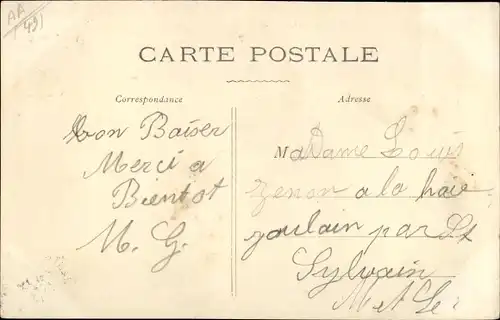 AA
(49)
CARTE POSTALE
Correspondance
Adresse
Bon Baiser
Merci a
Bientot
M. G.
MaDame Louis
zenon a la haie
joulain par St
Sylvain
M et Le